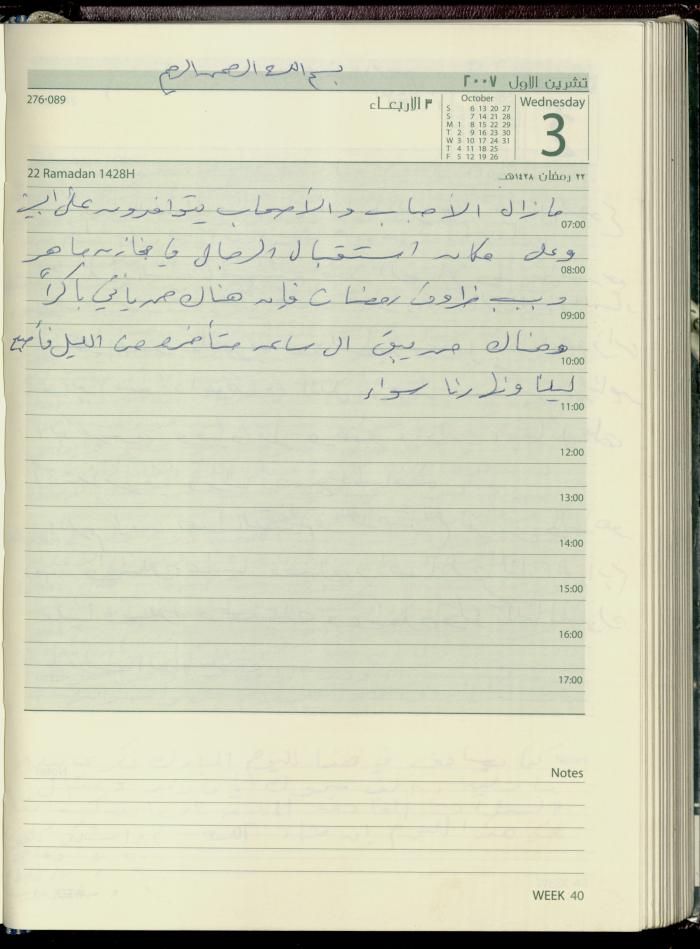 بسم الله الرحمن الرحيم
تشرين الاول ٢٠٠٧
276-089
٣ الأربعـاء
October
S 6 13 20 27
S 7 14 21 28
M 1 8 15 22 29
T 2 9 16 23 30
W 3 10 17 24 31
T 4 11 18 25
F 5 12 19 26
Wednesday
3
22 Ramadan 1428H
٢٢ رمضان ١٤٢٨هـ
مازال الأحباب والأصحاب يتوافدون على البيت
07:00
وعلى مكان استقبال الرجال في
08:00
وبسبب ظروف رمضان فإن هناك من يأتي باكراً
09:00
وهناك من يبقى الى ساعه متأخره من الليل فأصبح
10:00
ليلنا ونهارنا سواء
11:00
12:00
13:00
14:00
15:00
16:00
17:00
Notes
WEEK 40